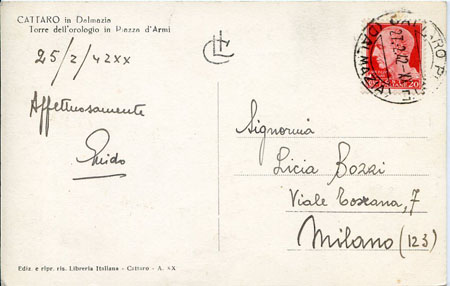 CATTARO in Dalmazia
Torre dell'orologio in Piazza d'Armi
25/2/42XX
Affettuosamente
Guido
Signorina
Licia Bozzi
Viale Toscana, 7
Milano (123)
Ediz. e ripr. ris. Libreria Italiana - Cattaro - A. XX
20